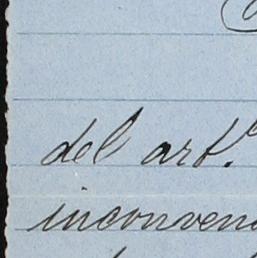 del art.º
inconven